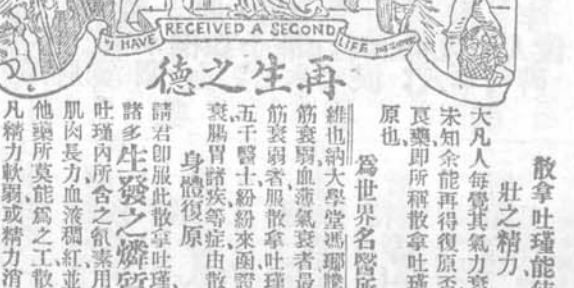 "I HAVE RECEIVED A SECOND LIFE
再生之德
散拿吐瑾能使
壯之精力
大凡人每覺其氣力衰
未知余能再得復原否
良藥即所稱散拿吐瑾
原也
爲世界名醫所
維也納大學堂馮瑯
筋衰弱血薄氣衰者最
筋衰弱者服散拿吐瑾
五千醫士紛紛來函證
衰腸胃諸疾等症由散
身體復原
請君卽服此散拿吐瑾
諸多生發之燐質
吐瑾內所含之㲴素用
肌肉長力血液稠紅並
他藥所莫能爲之工散
凡精力軟弱或精力消